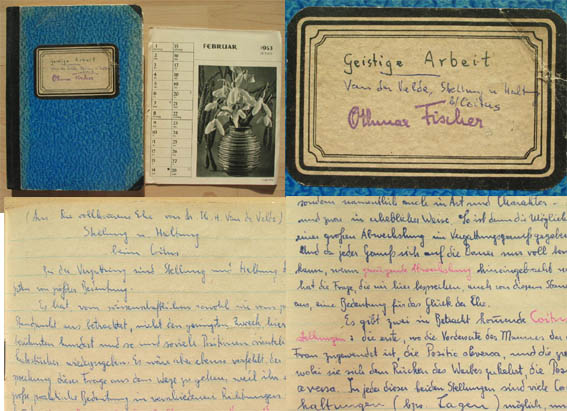 Geistige Arbeit
Van der Velde, Stellung u. Haltung
b/Coitus
Othmar Fischer
FEBRUAR
Geistige Arbeit
Van der Velde, Stellung u. Haltung
b/Coitus
Othmar Fischer
(Aus Die vollkommene Ehe von Dr Th. H. Van de Velde)
Stellung und Haltung
beim Coitus
In der Vergattung sind Stellung und Haltung d
von größter Bedeutung.
Es hat, vom wissenschaftlichen sowohl wie vom
Standpunkt aus betrachtet, nicht den geringsten Zweck, hier
hundert und so und soviele Positionen
wiederzugeben. Es wäre aber ebenso verfehlt, de
sprechung dieser Frage aus dem Wege zu gehen, weil ihr
große praktische Bedeutung in verschiedenen Richtungen
sondern namentlich auch in Art und Charakter -
und zwar in erheblicher Weise. So ist denn die Möglich
einer großen Abwechslung im Vergattungsgenuß gegeben
Und da jeder Genuß sich auf die Dauer nur voll
kann, wenn genügende Abwechslung hineingebracht
hat die Frage, die wir hier besprechen, auch von diesem Stan
aus, eine Bedeutung für das Glück der Ehe.
Es gibt zwei in Betracht kommende Coitus
stellungen: die erste, wo die Vorderseite des Mannes der
Frau zugewandt ist, die Positio obversa, und die
wobei sie dem Rücken des Werbers zukehrt, die Pos
aversa. In jeder dieser beiden Stellungen sind viele Co
haltungen (bzw Lagen) möglich, un